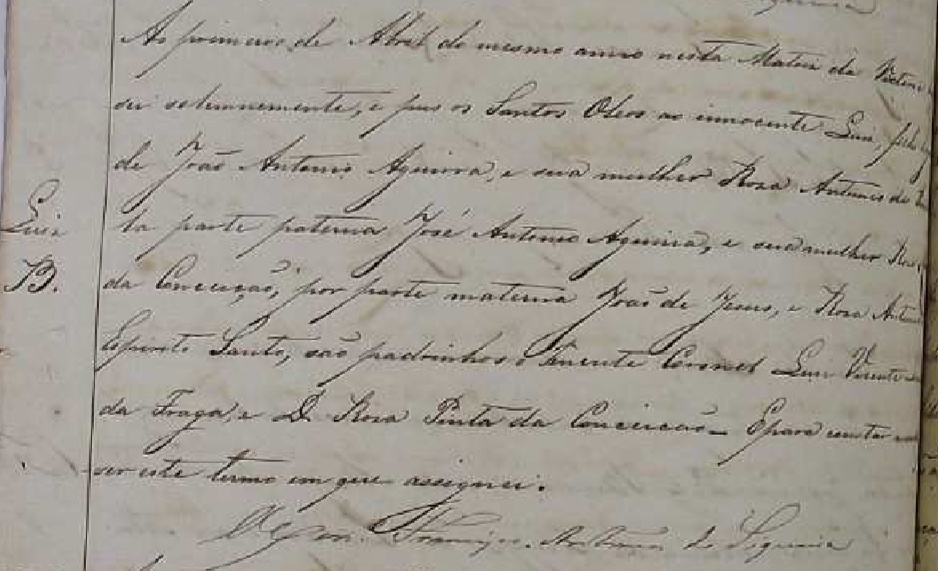 Ao primeiro de Abril do mesmo anno nesta Matriz da
sei solemnemente, e pus os Santos Oleos ao innocente Luis, filho
de João Antonio Aguirra, e sua mulher Rosa Antunes de
Luis
ta parte paterna José Antonio Aguirra, e sua mulher
B.
da Conceição, por parte materna João de Jesus, e Rosa
Espirito Santo, são padrinhos o Tenente Coronel Luis Vicente
da Fraga, e D. Rosa Pinta da Conceicão E para constar
ser este termo em que assignei.
Francisco Antunes de Siqueira